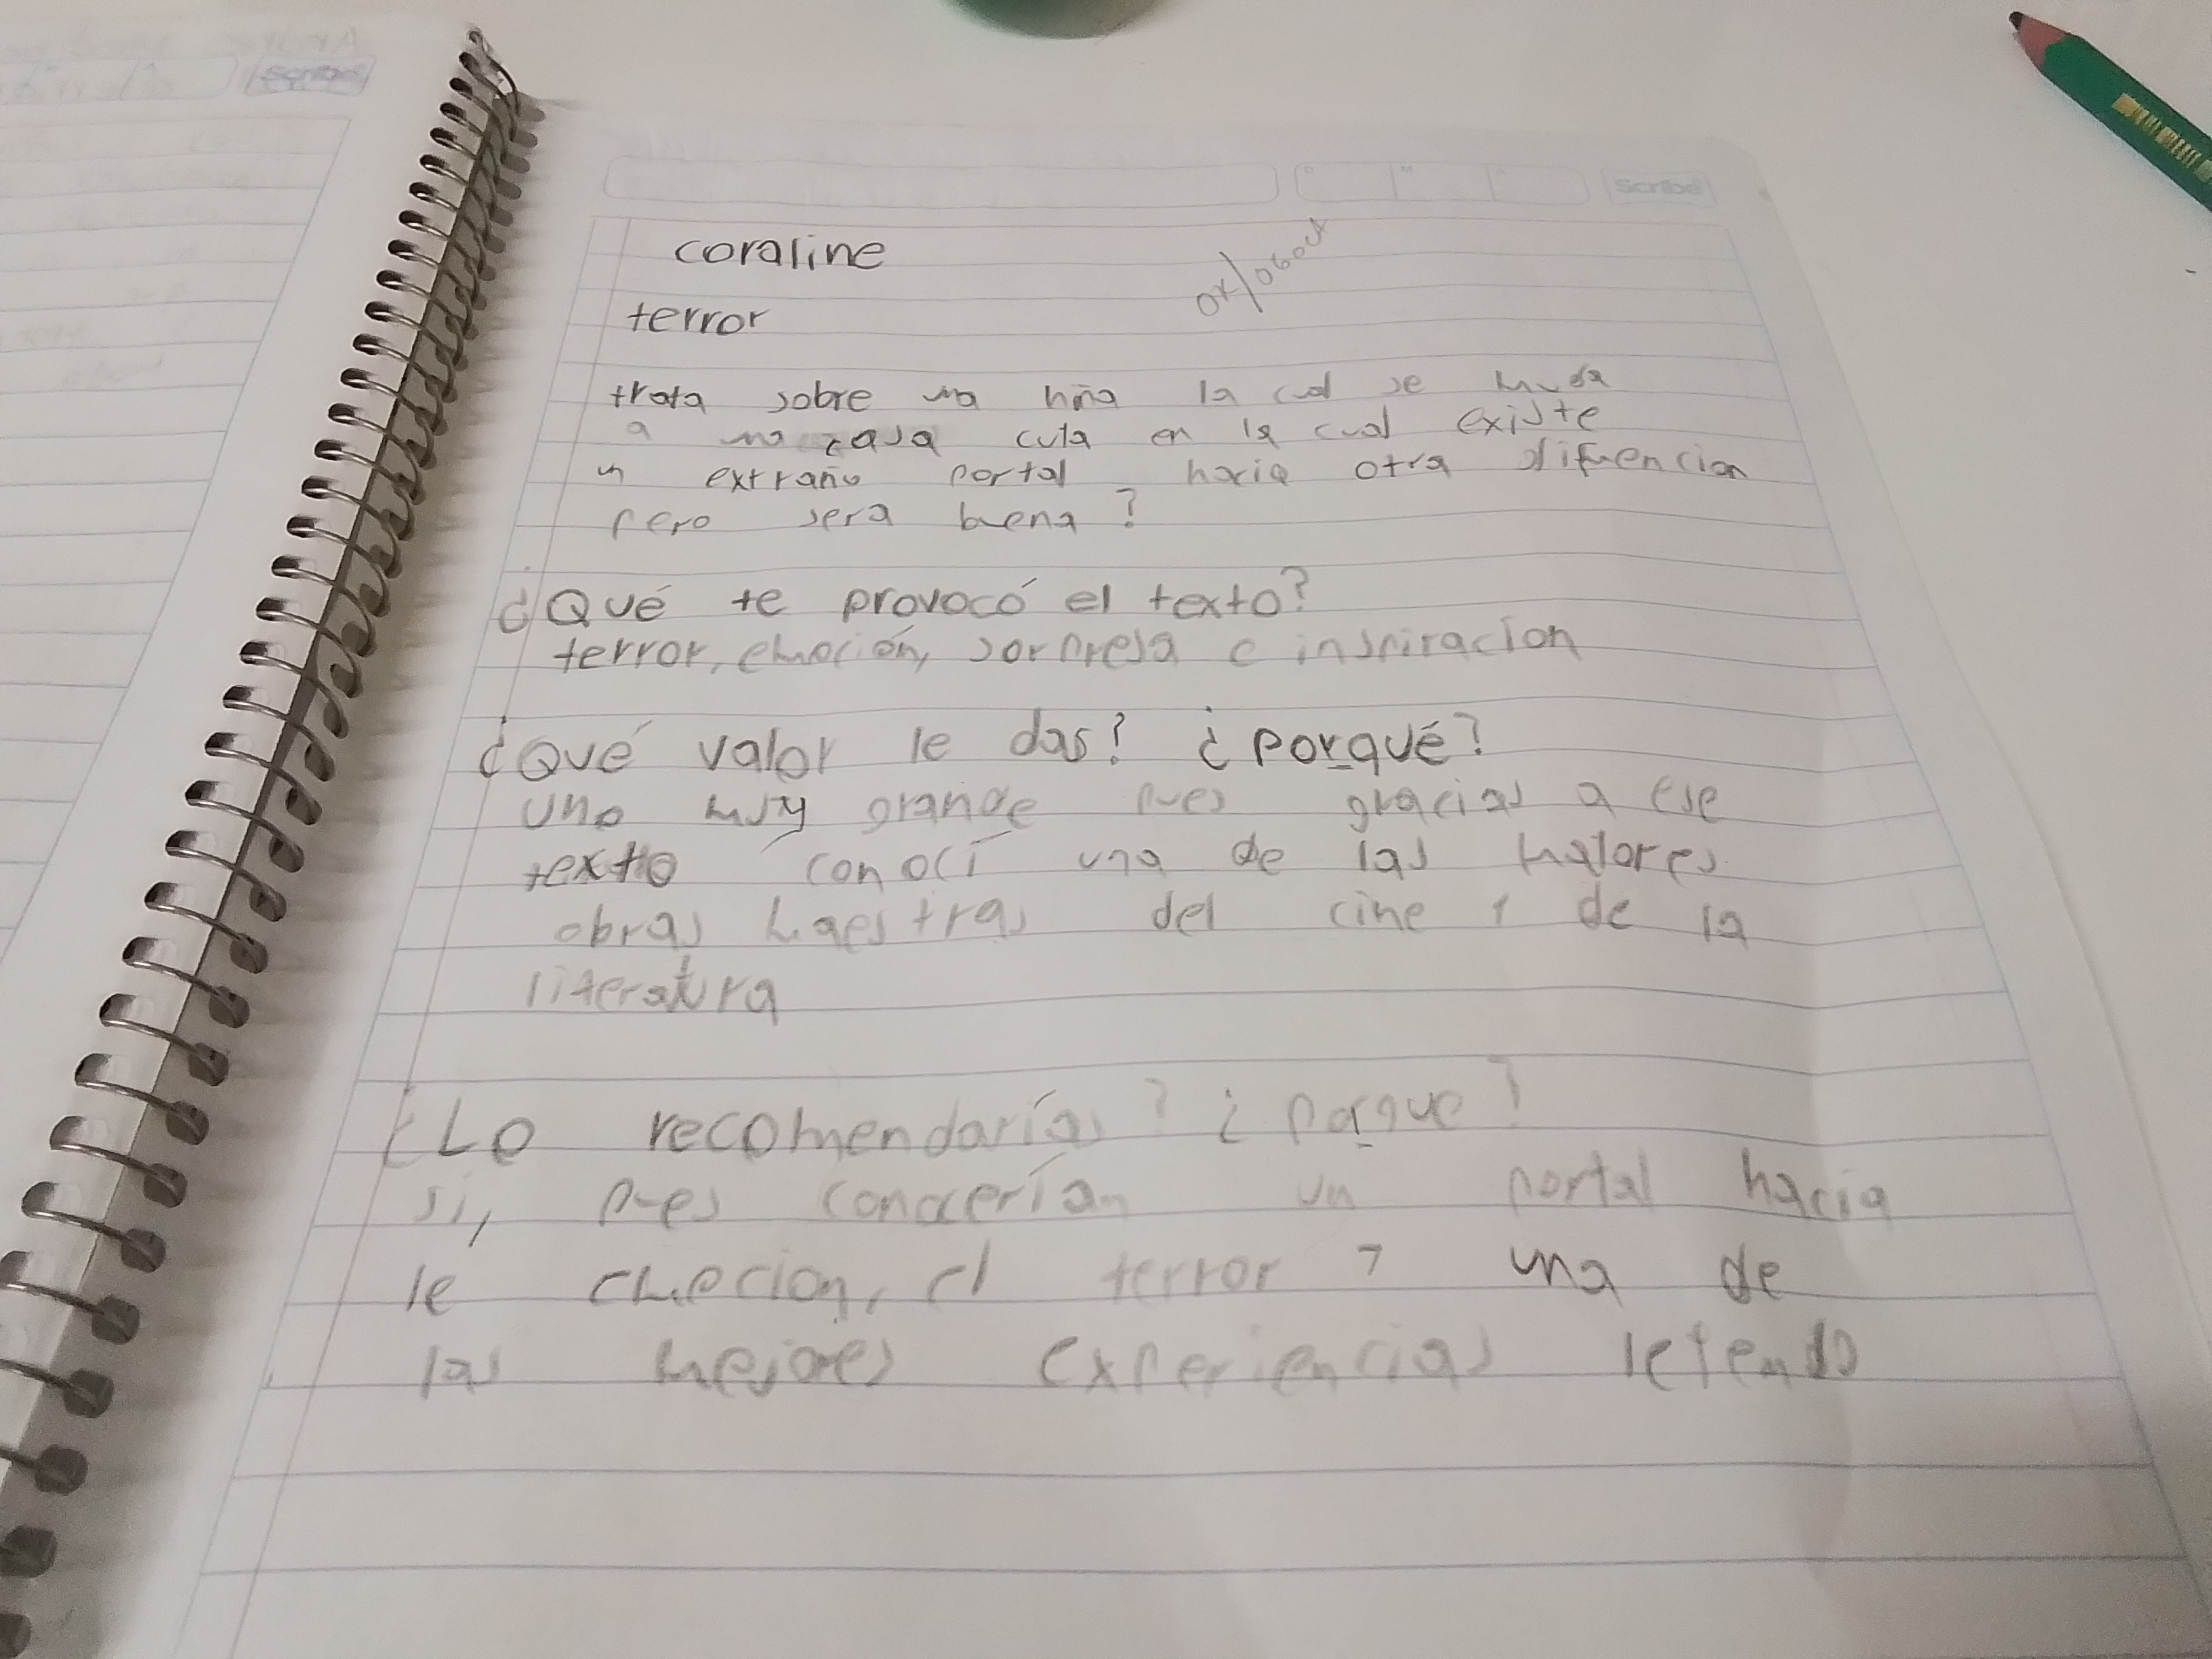 scribe
coraline
ok/06oct
terror
trata sobre una niña la cual se muda
a una casa en la cual existe
un extraño portal hacia otra
pero sera buena?
¿Qué te provocó el texto?
terror, emoción, sorpresa e inspiracíon
¿Qué valor le das? ¿porqué?
uno muy grande pues gracias a ese
texto conocí una de las
obras maestras del cine y de la
literatura
¿Lo recomendarías? ¿porque?
si, pues conocerían un portal hacia
le emocion, el terror y una de
las mejores experiencias leyendo